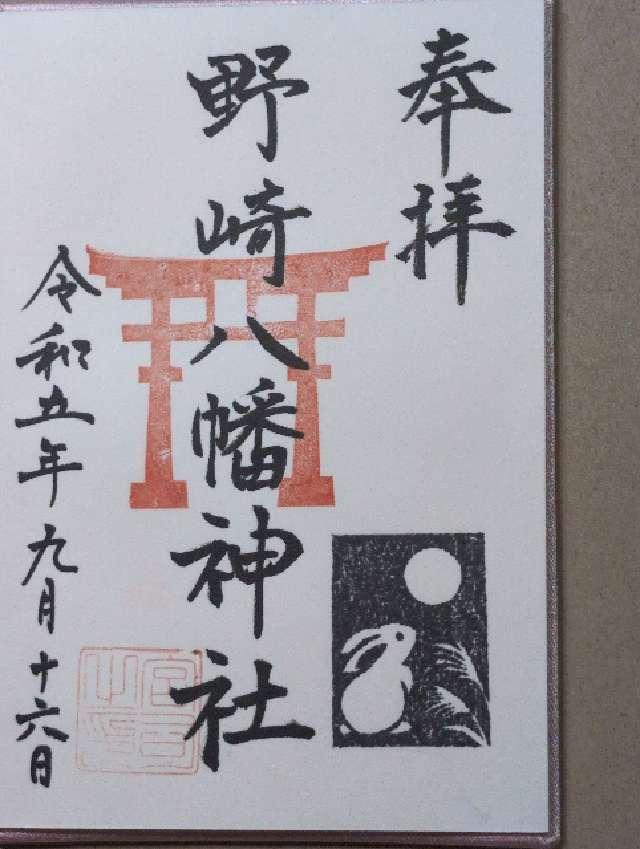 奉拝
野崎八幡神社
令和五年九月十六日